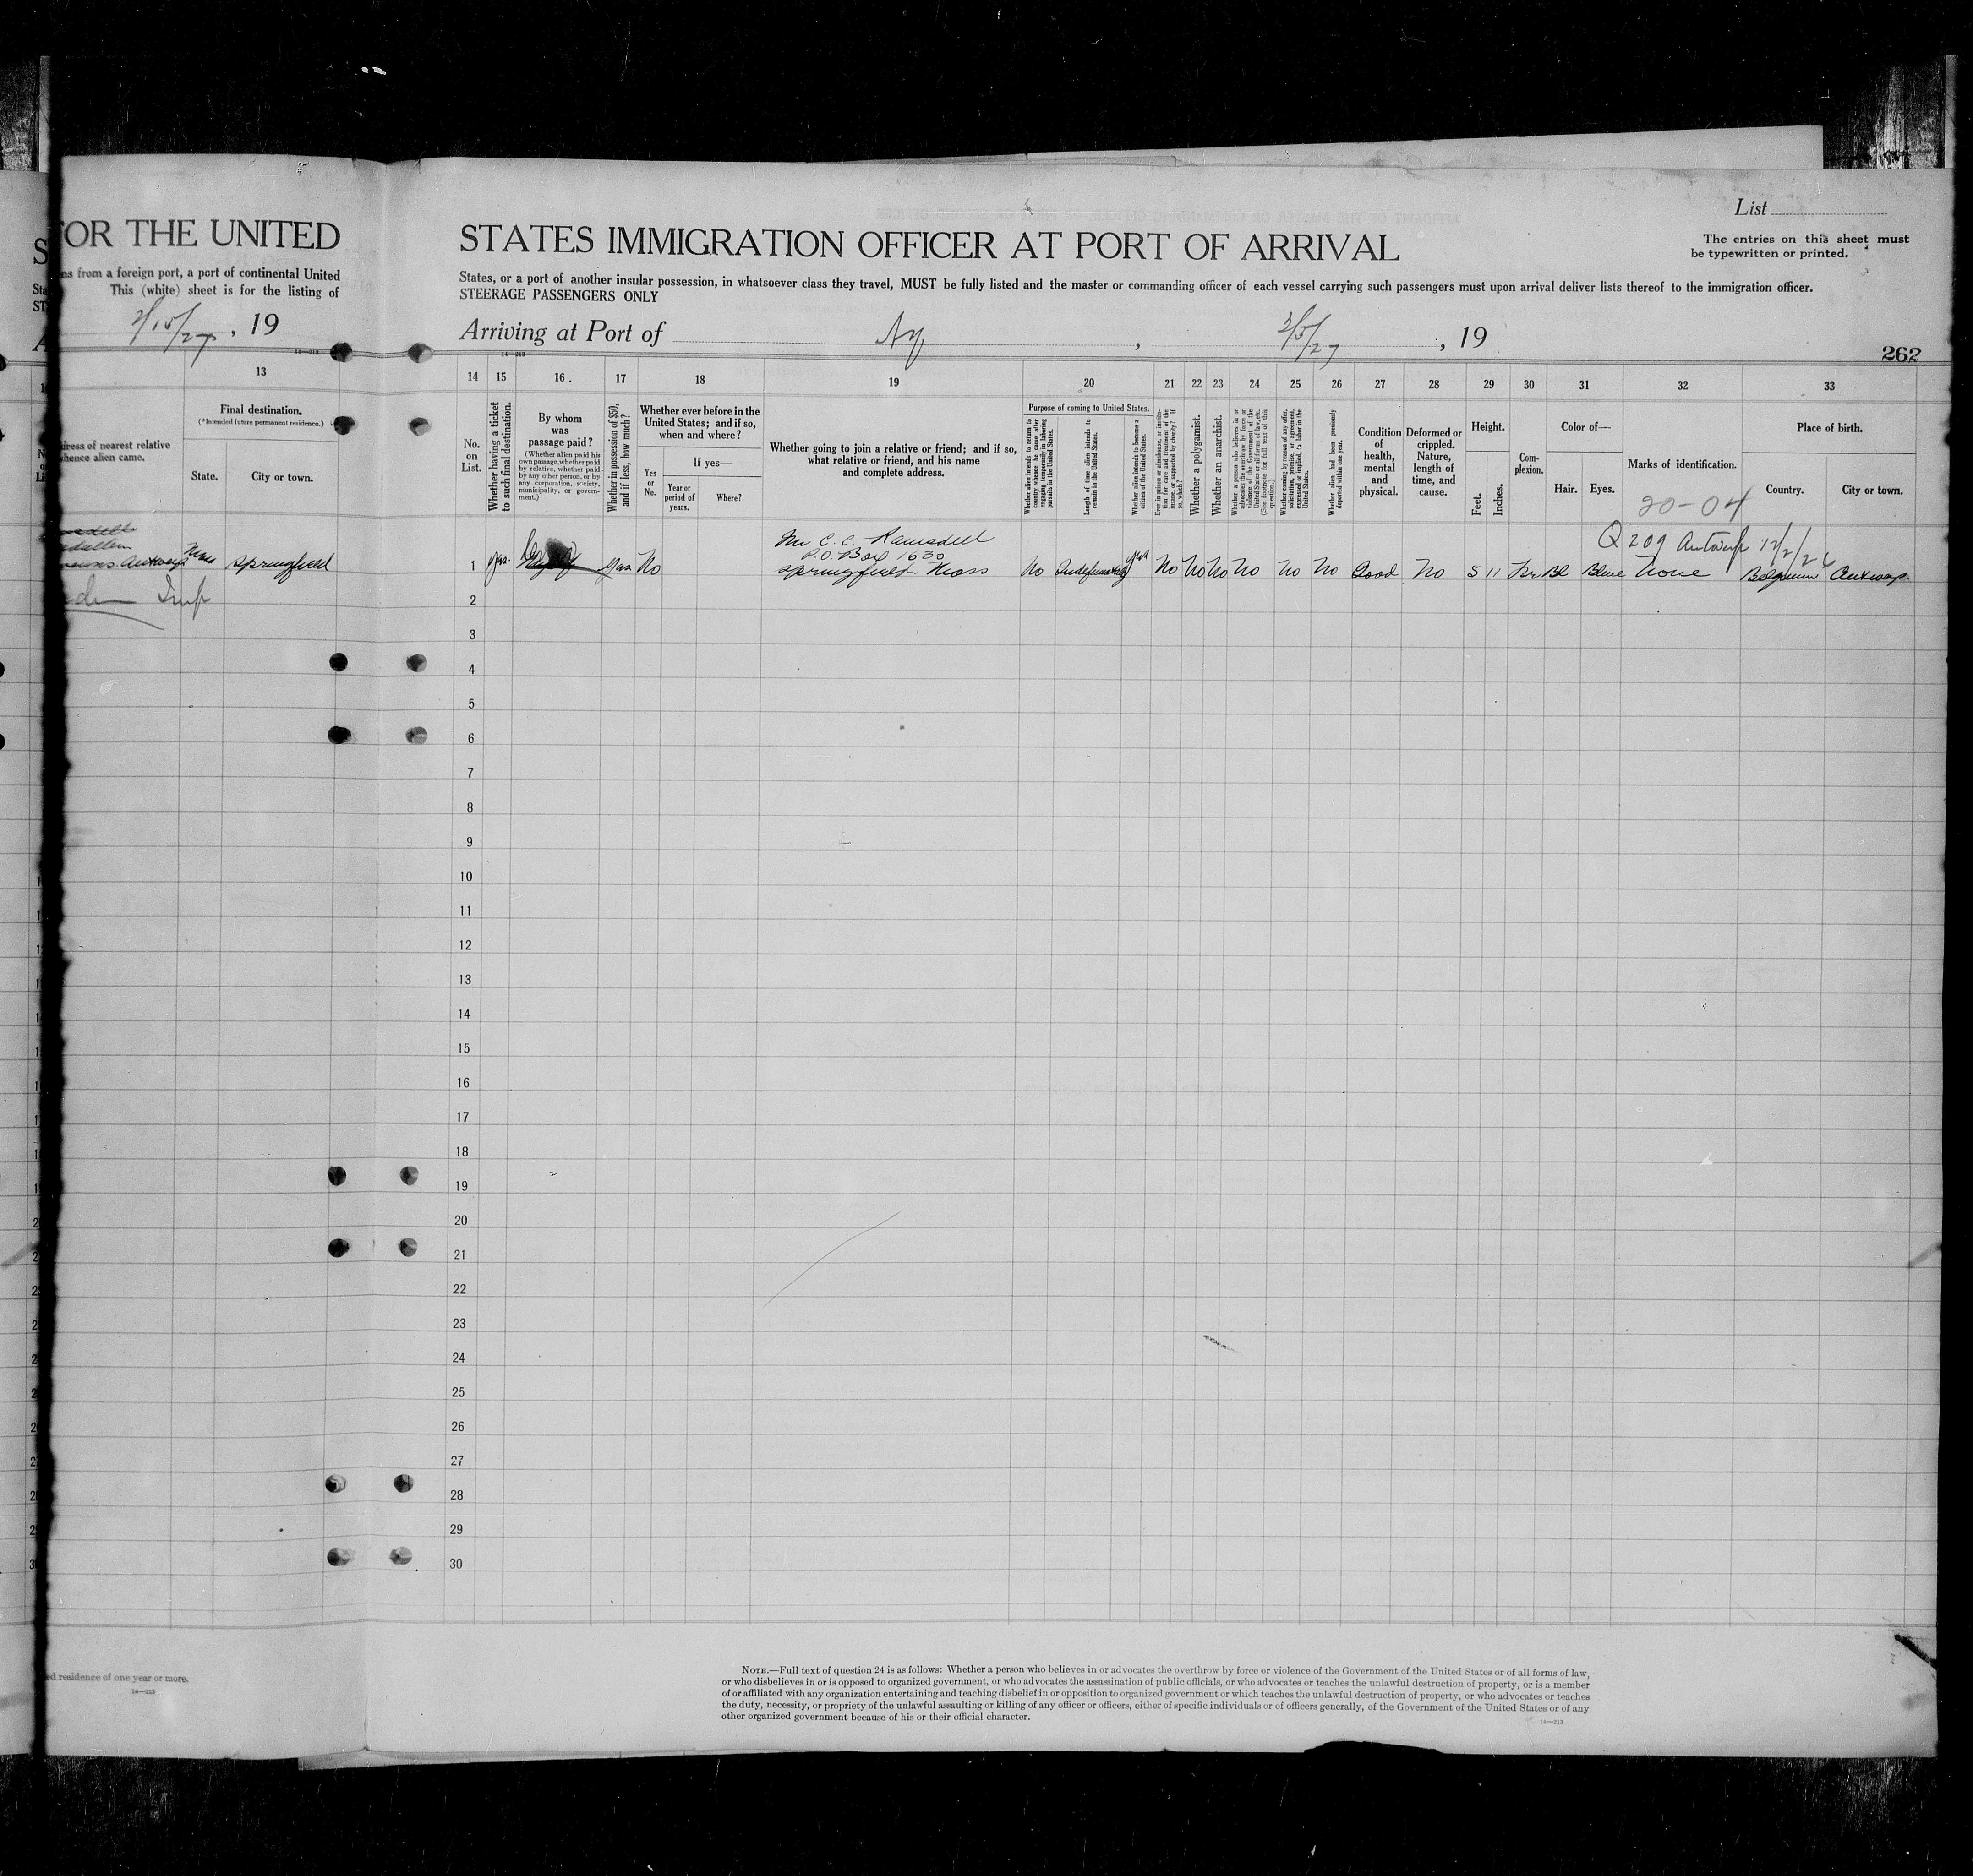 FOR THE UNITED
ns from a foreign port, a port of continental United
This (white) sheet is for the listing of
2/15/27, 19
STATES IMMIGRATION OFFICER AT PORT OF ARRIVAL
States, or a port of another insular possession, in whatsoever class they travel, MUST be fully listed and the master or commanding officer of each vessel carrying such passengers must upon arrival deliver lists thereof to the immigration officer.
STEERAGE PASSENGERS ONLY
List
The entries on this sheet must
be typewritten or printed.
Arriving at Port of Ny, , 19
262
13
Final destination.
(*Intended future permanent residence.)
dress of nearest relative
whence alien came.
State.
City or town.
14 15 16. 17 18 19 20 21 22 23 24 25 26 27 28 29 30 31 32 33
No. on List.
Whether having a ticket to such final destination.
By whom was passage paid?
(Whether alien paid his own passage, whether paid by relative, whether paid by any other person, or by any corporation, society, municipality, or government.)
Whether in possession of $50, and if less, how much?
Whether ever before in the United States; and if so, when and where?
Yes or No.
If yes—
Year or period of years.
Where?
Whether going to join a relative or friend; and if so, what relative or friend, and his name and complete address.
Purpose of coming to United States.
Whether alien intends to return to country whence he came after engaging temporarily in laboring pursuits in the United States.
Length of time alien intends to remain in the United States.
Whether alien intends to become a citizen of the United States.
Ever in prison or almshouse, or institution for care and treatment of the insane, or supported by charity? If so, which?
Whether a polygamist.
Whether an anarchist.
Whether a person who believes in or advocates the overthrow by force or violence of the Government of the United States or all forms of law, etc. (See footnote for full text of this question.)
Whether coming by reason of any offer, solicitation, promise, or agreement, expressed or implied, to labor in the United States.
Whether alien had been previously deported within one year.
Condition of health, mental and physical.
Deformed or crippled. Nature, length of time, and cause.
Height.
Feet.
Inches.
Complexion.
Color of—
Hair.
Eyes.
Marks of identification.
Place of birth.
Country.
City or town.
20-04
Q 209 Antwerp 12/2/26
Antwerp Mass Springfield
Mr C. C. Ramsdell
P.O. Box 1630
Springfield. Mass
1 Yes. Yes No No Indefinitely Yes No No No No No No Good No 5 11 Bl Blue None Belgium Antwerp.
2
3
4
5
6
7
8
9
10
11
12
13
14
15
16
17
18
19
20
21
22
23
24
25
26
27
28
29
30
ed residence of one year or more.
14—213
NOTE.—Full text of question 24 is as follows: Whether a person who believes in or advocates the overthrow by force or violence of the Government of the United States or of all forms of law,
or who disbelieves in or is opposed to organized government, or who advocates the assassination of public officials, or who advocates or teaches the unlawful destruction of property, or is a member
of or affiliated with any organization entertaining and teaching disbelief in or opposition to organized government or which teaches the unlawful destruction of property, or who advocates or teaches
the duty, necessity, or propriety of the unlawful assaulting or killing of any officer or officers, either of specific individuals or of officers generally, of the Government of the United States or of any
other organized government because of his or their official character.
14—213